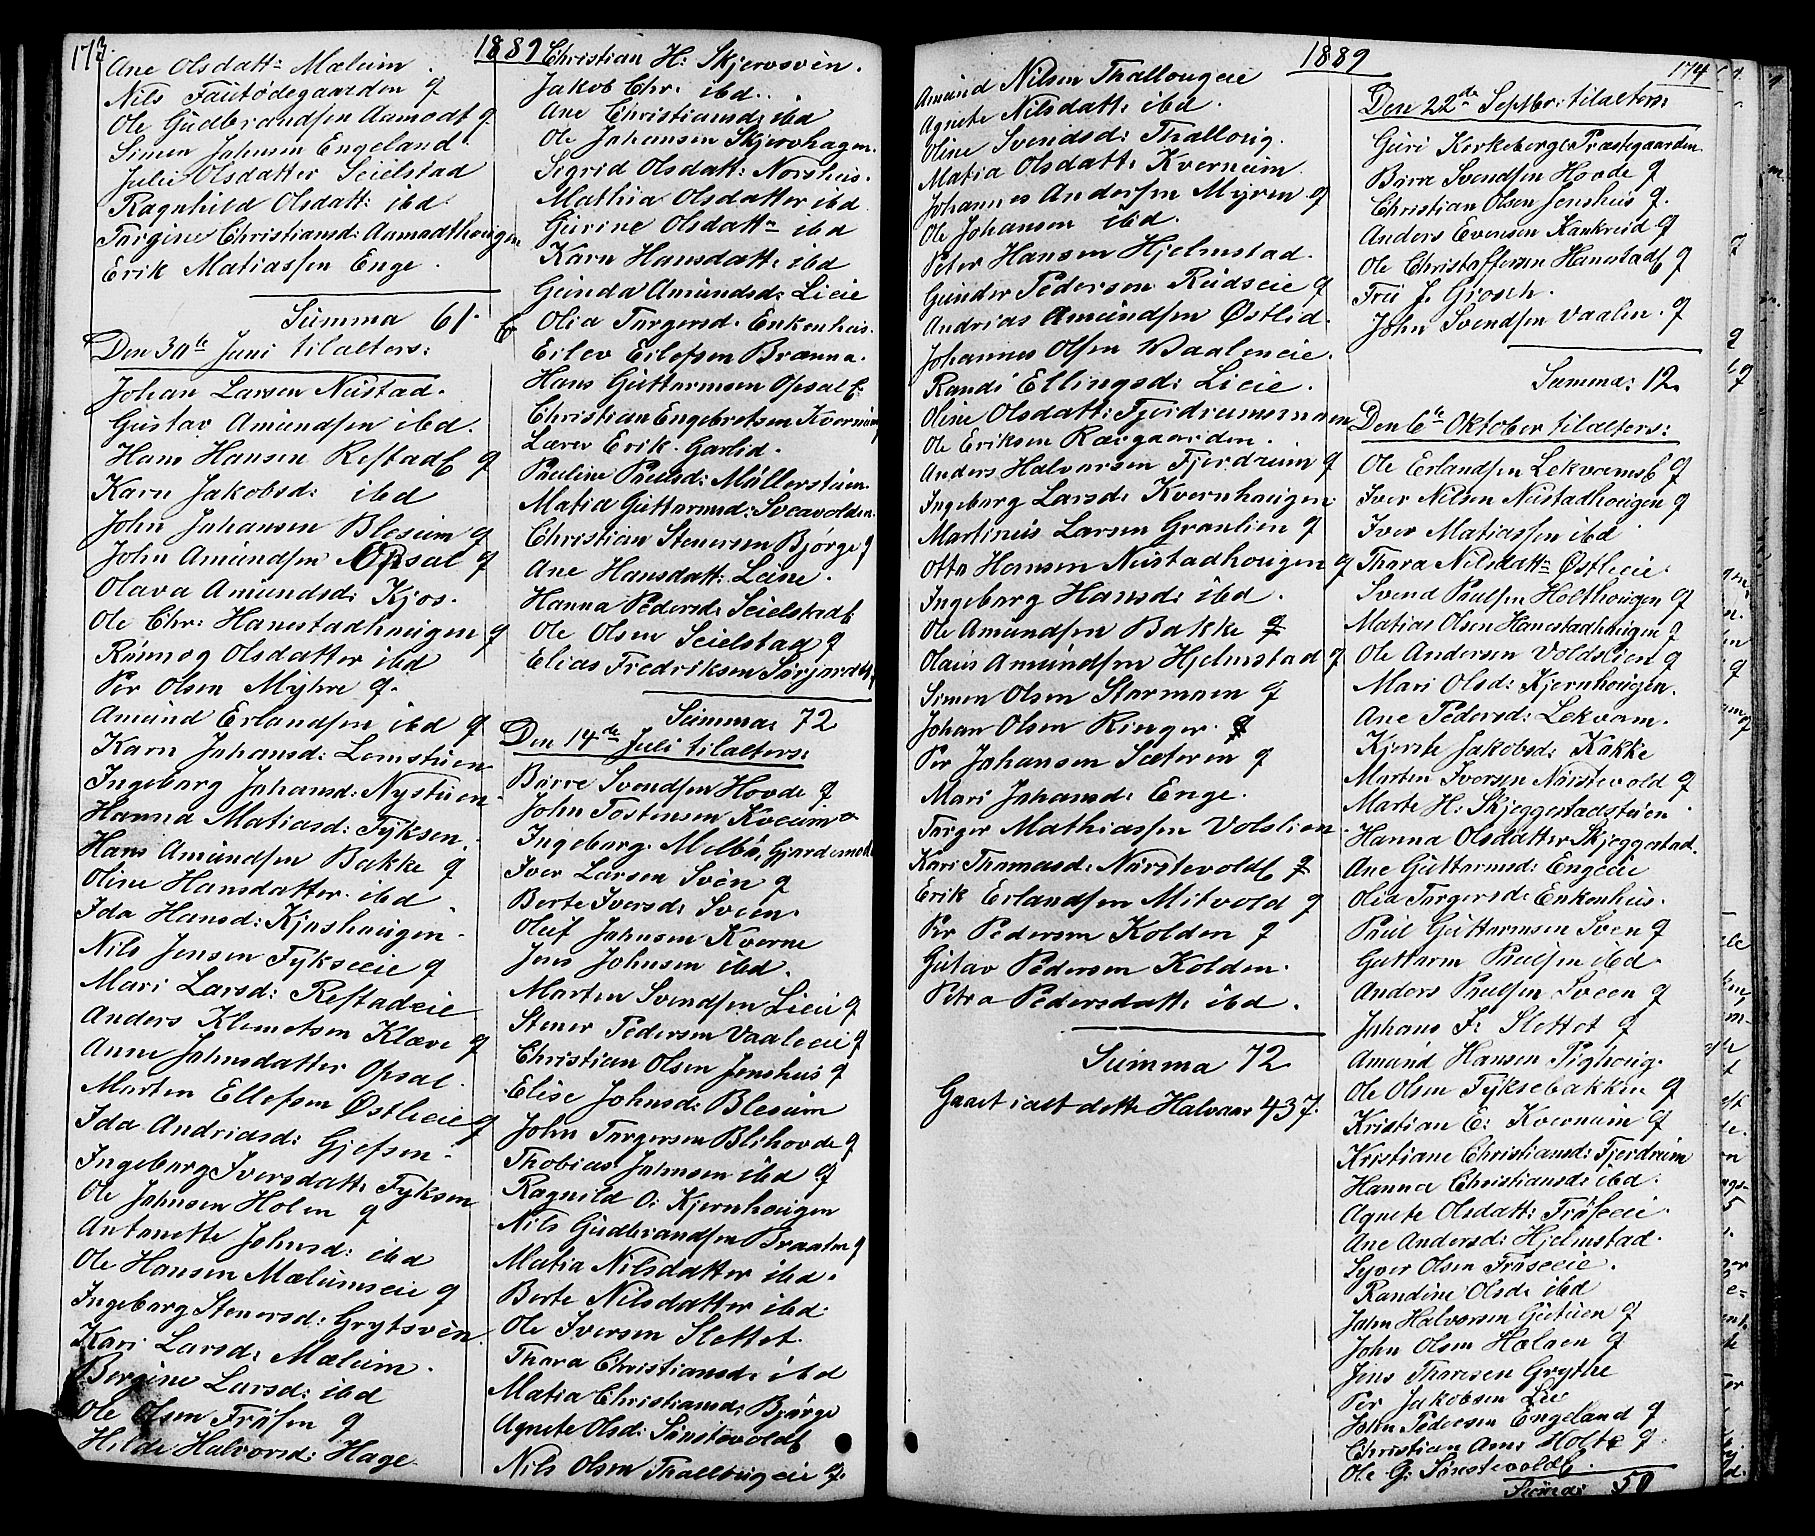 173.
1889
Ane Olsdatt: Mælum.
Nils Fautødegaarden g
Ole Gudbrandsen Aamodt g
Simen Johnsen Engeland.
Julie Olsdatter Seielstad
Ragnhild Olsdatt: ibd
Torgine Christiansd: Aamodthougen
Erik Matiassen Enge.
Summa 61.
Den 30te Juni tilalters:
Johan Larsen Nustad.
Gustav Amundsen ibd.
Hans Hansen Refstad g
Karn Jakobsd: ibd
John Johansen Blesum g
John Amundsen Opsal g
Olava Amundsd: Kjos.
Ole Chr: Hanestadhougen g
Rønnog Olsdatter ibd
Per Olsen Myhre g.
Amund Erlandsen ibd g
Karn Johansd: Lomstuen
Ingeborg Johansd: Nystuen
Hanna Matiasd: Fyksen.
Hans Amundsen Bakke g
Oline Hansdatter ibd
Ida Hansd: Kjoshougen.
Nils Jensen Fykseeie g
Mari Larsd: Refstadeie
Anders Klemetsen Klæve g
Anne Johnsdatter Opsal.
Marten Ellefsen Østlieeie g
Ida Andriasd: Gjefsen.
Ingeborg Iversdatt: Fyksen
Ole Johnsen Holen g
Antonette Johnsd: ibd
Ole Hansen Mælumseie g
Ingeborg Stenersd: Grytsvèn.
Kari Larsd: Mælum.
Bergine Larsd: ibd
Ole Olsen Frøsen g
Hilde Halvorsd: Hage
Christian H: Skjervsvèn.
Jakob Chr: ibd.
Ane Christiansd: ibd
Ole Johansen Skjervhagen.
Sigrid Olsdatt: Norshus.
Mathia Olsdatter ibd
Gurine Olsdatt: ibd
Karn Hansdatt: ibd
Gunda Amundsd: Lieie
Olia Torgersd: Enkenhus.
Eilev Eilefsen Brænna.
Hans Guttormsen Opsal
Christian Engebretsen Kvernum
Lærer Erik Garlid.
Pauline Paulsd: Møllerstuen
Matia Guttormsd: Sveavolden.
Christian Stenersen Bjørge g
Ane Hansdatt: Leine.
Hanna Pedersd: Seielstad
Ole Olsen Seielstad g
Elias Fredriksen Sørjordet
Summa: 72
Den 14de Juli tilalters:
Børre Svendsen Hovde g
John Tostensen Kveum
Ingeborg Melbø, Gjardemoen
Iver Larsen Svèn g
Berte Iversd: Sveen.
Oluf Johnsen Kverne
Jens Johnsen ibd.
Marten Svendsen Lieie g
Stener Pedersen Vaaleeie g
Christian Olsen Jenshus g
Elise Johnsd: Blesum
John Torgersen Blihovde g
Thobias Johnsen ibd g
Ragnild O: Kjernhougen
Nils Gudbrandsen Braaten g
Matia Nilsdatter ibd.
Berte Nilsdatter ibd
Ole Iversen Slettet.
Thora Christiansd: ibd
Matia Christiansd: Bjørge
Agnete Olsd: Sønstevold
Nils Olsen Thallougeie g.
1889
174
Amund Nilsen Thallougeie
Agnete Nilsdatt: ibd.
Oline Svendsd: Thalloug.
Matia Olsdatt: Kvernum
Johannes Andersen Myren g
Ole Johansen ibd.
Peter Hansen Hjelmstad.
Gunder Pedersen Rudseie g
Andrias Amundsen Østlid.
Johannes Olsen Vaaleneie.
Randi Ellingsd: Lieie.
Oline Olsdatt: Fjerdrummoen
Ole Eriksen Rævgaarden.
Anders Halvorsen Fjerdrum g
Ingeborg Larsd: Kvernhougen.
Martinus Larsen Granlien g
Otto Hansen Nustadhougen g
Ingeborg Hansd: ibd.
Ole Amundsen Bakke g
Olaus Amundsen Hjelmstad g
Simen Olsen Stormoen g
Johan Olsen Ringer. g
Per Johansen Sæteren g
Mari Johansd: Enge.
Torger Mathiassen Volslien
Kari Thomasd: Nørstevold g
Erik Erlandsen Mitvold g
Per Pedersen Kolden g
Gustav Pedersen Kolden.
Petra Pedersdatt: ibd.
Summa 72
Gaaet ialt dette Halvaar 437.
Den 22de Septbr: tilalters:
Guri Kerkeberge Præstegaarden.
Børre Svendsen Hovde g
Christian Olsen Jenshus g.
Anders Evensen Kankreid g
Ole Christoffersen Hanestad g
Fru J. Grosch.
John Svendsen Vaalen. g
Summa: 12.
Den 6te Oktober tilalters:
Ole Erlandsen Lekvam g
Iver Nilsen Nustadhougen g
Iver Matiassen ibd
Thora Nilsdatt: Østlieie.
Svend Paulsen Holthougen g
Matias Olsen Hanestadhougen g
Ole Andersen Voldslien g
Mari Olsd: Kjernhougen.
Ane Pedersd: Lekvam.
Kjersti Jakobsd: Kakke
Marten Iversen Nørstevold g
Marte H: Skjeggestadstuen
Hanna Olsdatter Skjeggestad.
Ane Guttormsd: Engeeie
Olia Torgersd: Enkenhus.
Paul Guttormsen Sven g
Guttorm Paulsen ibd.
Anders Paulsen Sveen g
Johans J: Slettet g
Amund Hansen Pighoug.
Ole Olsen Fyksebakken g
Kristian E: Kvernum g
Kristiane Christiansd: Fjerdrum
Hanna Christiansd: ibd.
Agnete Olsdatt: Frøseeie.
Ane Andersd: Hjelmstad.
Syver Olsen Frøseeie.
Randine Olsd: ibd
John Halvorsen Gutuen g
John Olsen Holøen g
Jens Thoresen Grythe
Per Jakobsen Lie
John Pedersen Engeland g
Christian Am: Holte g
Ole G: Sønstevold
Summa: 50